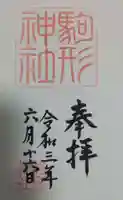 駒形
神社
奉拝
令和三年
六月十六日